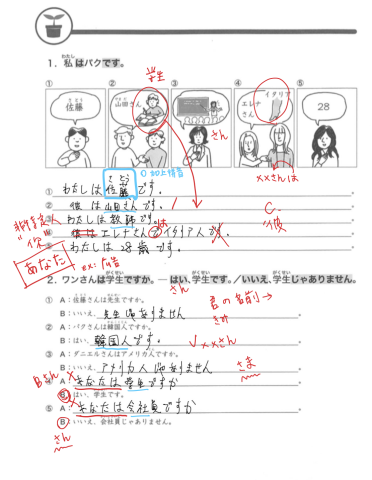 1. 私はパクです。
わたし
① ② ③ ④ ⑤
佐藤
さとう
山田さん
やまだ
学生
さん
イタリア
エレナさん
28
xxさんは
① わたしは佐藤です。
さとう
加上情音
② 彼は山田さんです。
③ わたしは教師です。
④ 彼はエレナさんはイタリア人です。
⑤ わたしは28歳です。
彼
"你"
あなた
ex:
2. ワンさんは学生ですか。— はい、学生です。／いいえ、学生じゃありません。
がくせい がくせい がくせい
さん
① A：佐藤さんは先生ですか。
B：いいえ、先生じゃなりません
君の名前→
② A：パクさんは韓国人ですか。
B：はい、韓国人です。
✓xxさん
③ A：ダニエルさんはアメリカ人ですか。
B：いいえ、アメリカ人じゃなりません
さま
Bさん
④ A：あなたは学生ですか
B：はい、学生です。
⑤ A：あなたは会社員ですか
B：いいえ、会社員じゃありません。
さん